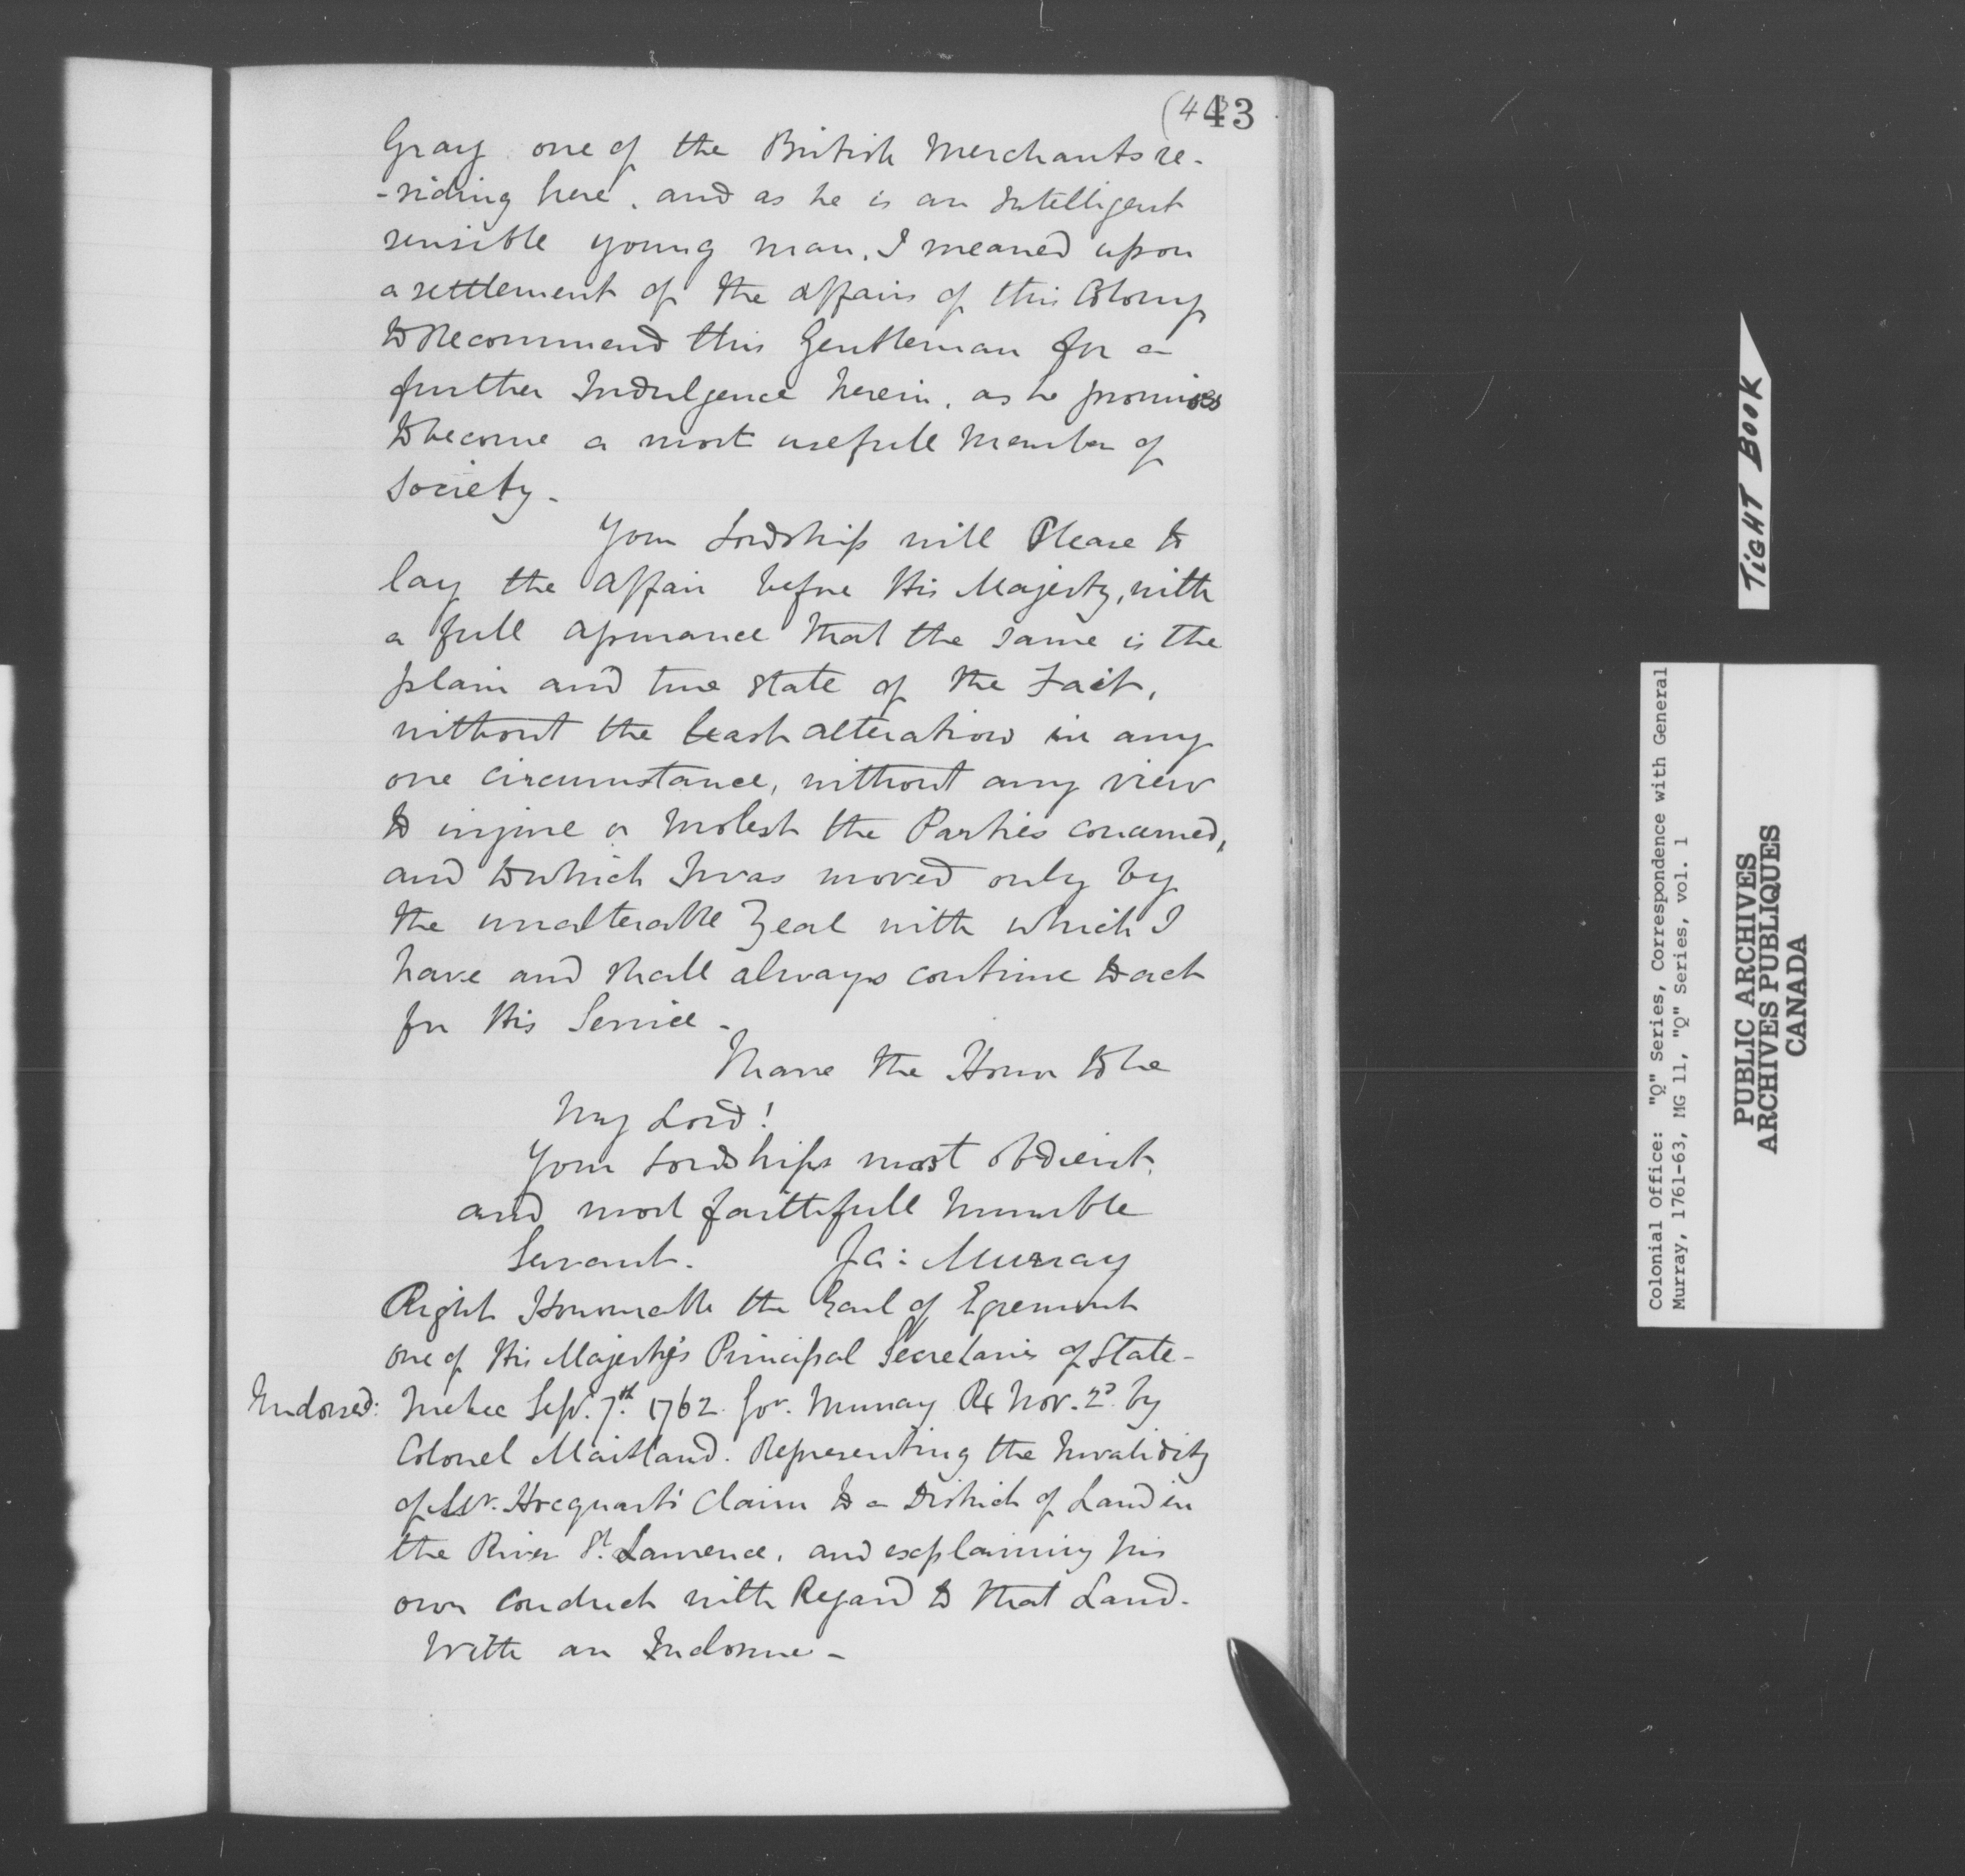 (42 43
Gray one of the British Merchants re-
-siding here, and as he is an Intelligent
sensible young man, I meaned upon
a settlement of the affairs of this Colony
to recommend this Gentleman for a
further Indulgence herein, as he promises
to become a most usefull Member of
Society.-
Your Lordship will Please to
lay the affair before His Majesty, with
a full assurance that the same is the
plain and true state of the Fact,
without the least alteration in any
one circumstance, without any view
to injure or molest the Parties concerned,
and to which I was moved only by
the unalterable Zeal with which I
have and shall always continue to act
for His Service-
I have the Honor to be
My Lord!
Your Lordships most obdient
and most faithfull humble
Servant. Ja: Murray
Right Honourable the Earl of Egremont
one of His Majesty's Principal Secretaries of State-
Indorsed: Quebec Sepr. 7th. 1762. Gov. Murray Rx Nov. 2d by
Colonel Maitland. Representing the Invalidity
of Mr. Hocquart's Claim to a District of Land in
the River St. Lawrence, and explaining his
own conduct with Regard to that Land.
With an Inclosure-
TIGHT BOOK
Colonial Office: "Q" Series, Correspondence with General
Murray, 1761-63, MG 11, "Q" Series, vol. 1
PUBLIC ARCHIVES
ARCHIVES PUBLIQUES
CANADA